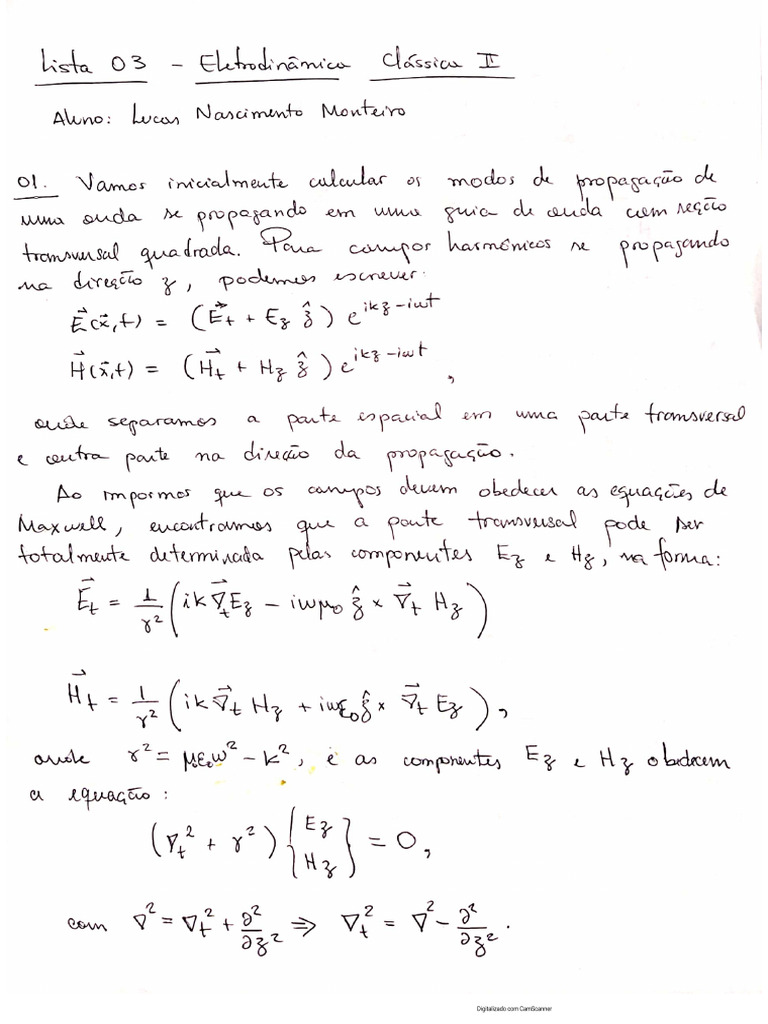 Lista 03 - Eletrodinâmica Clássica II
Aluno: Lucas Nascimento Monteiro
01. Vamos inicialmente calcular os modos de propagação de
uma onda se propagando em uma guia de onda com seção
transversal quadrada. Para campos harmônicos se propagando
na direção z, podemos escrever:
E⃗(x⃗,t) = (E⃗_t + E_z ẑ) e^{ikz-iωt}
H⃗(x⃗,t) = (H⃗_t + H_z ẑ) e^{ikz-iωt},
onde separamos a parte espacial em uma parte transversal
e outra parte na direção da propagação.
Ao impormos que os campos devem obedecer as equações de
Maxwell, encontramos que a parte transversal pode ser
totalmente determinada pelas componentes E_z e H_z, na forma:
E⃗_t = 1/γ² (ik ∇⃗_t E_z - iωμ₀ ẑ × ∇⃗_t H_z)
H⃗_t = 1/γ² (ik ∇⃗_t H_z + iωε₀ ẑ × ∇⃗_t E_z),
onde γ² = με₀ω² - k², e as componentes E_z e H_z obedecem
a equação:
(∇_t² + γ²) {E_z H_z} = 0,
com ∇² = ∇_t² + ∂²/∂z² ⇒ ∇_t² = ∇² - ∂²/∂z².
Digitalizado com CamScanner